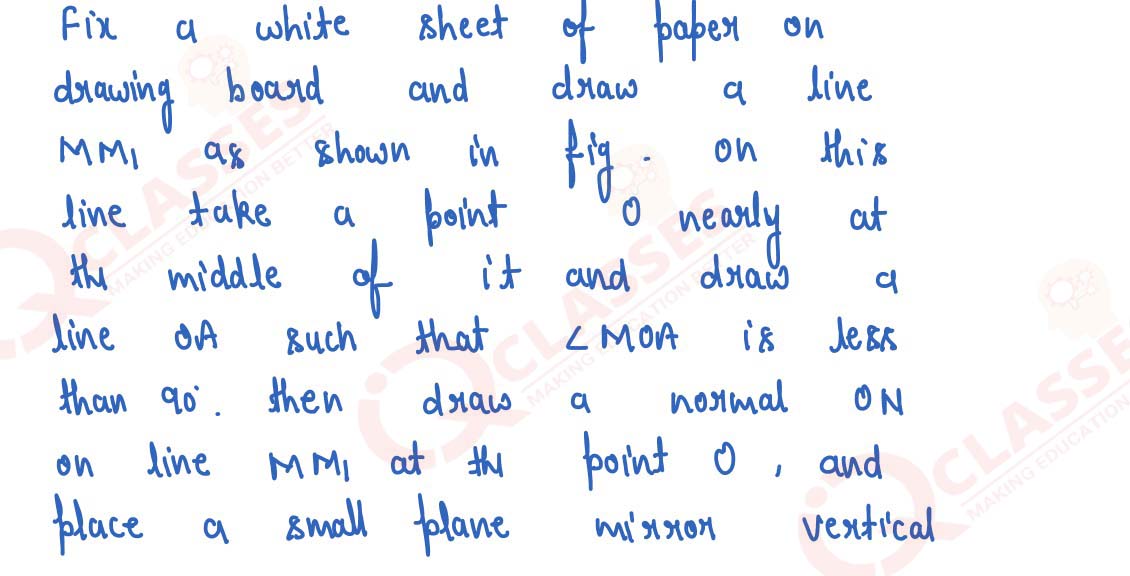 Fix a white sheet of paper on
drawing board and draw a line
MM1 as shown in fig. on this
line take a point O nearly at
the middle of it and draw a
line OA such that ∠MOA is less
than 90°. then draw a normal ON
on line MM1 at the point O, and
place a small plane mirror vertical
CLASSES
MAKING EDUCATION BETTER
CLASSES
MAKING EDUCATION BETTER
CLASSES
MAKING EDUCATION